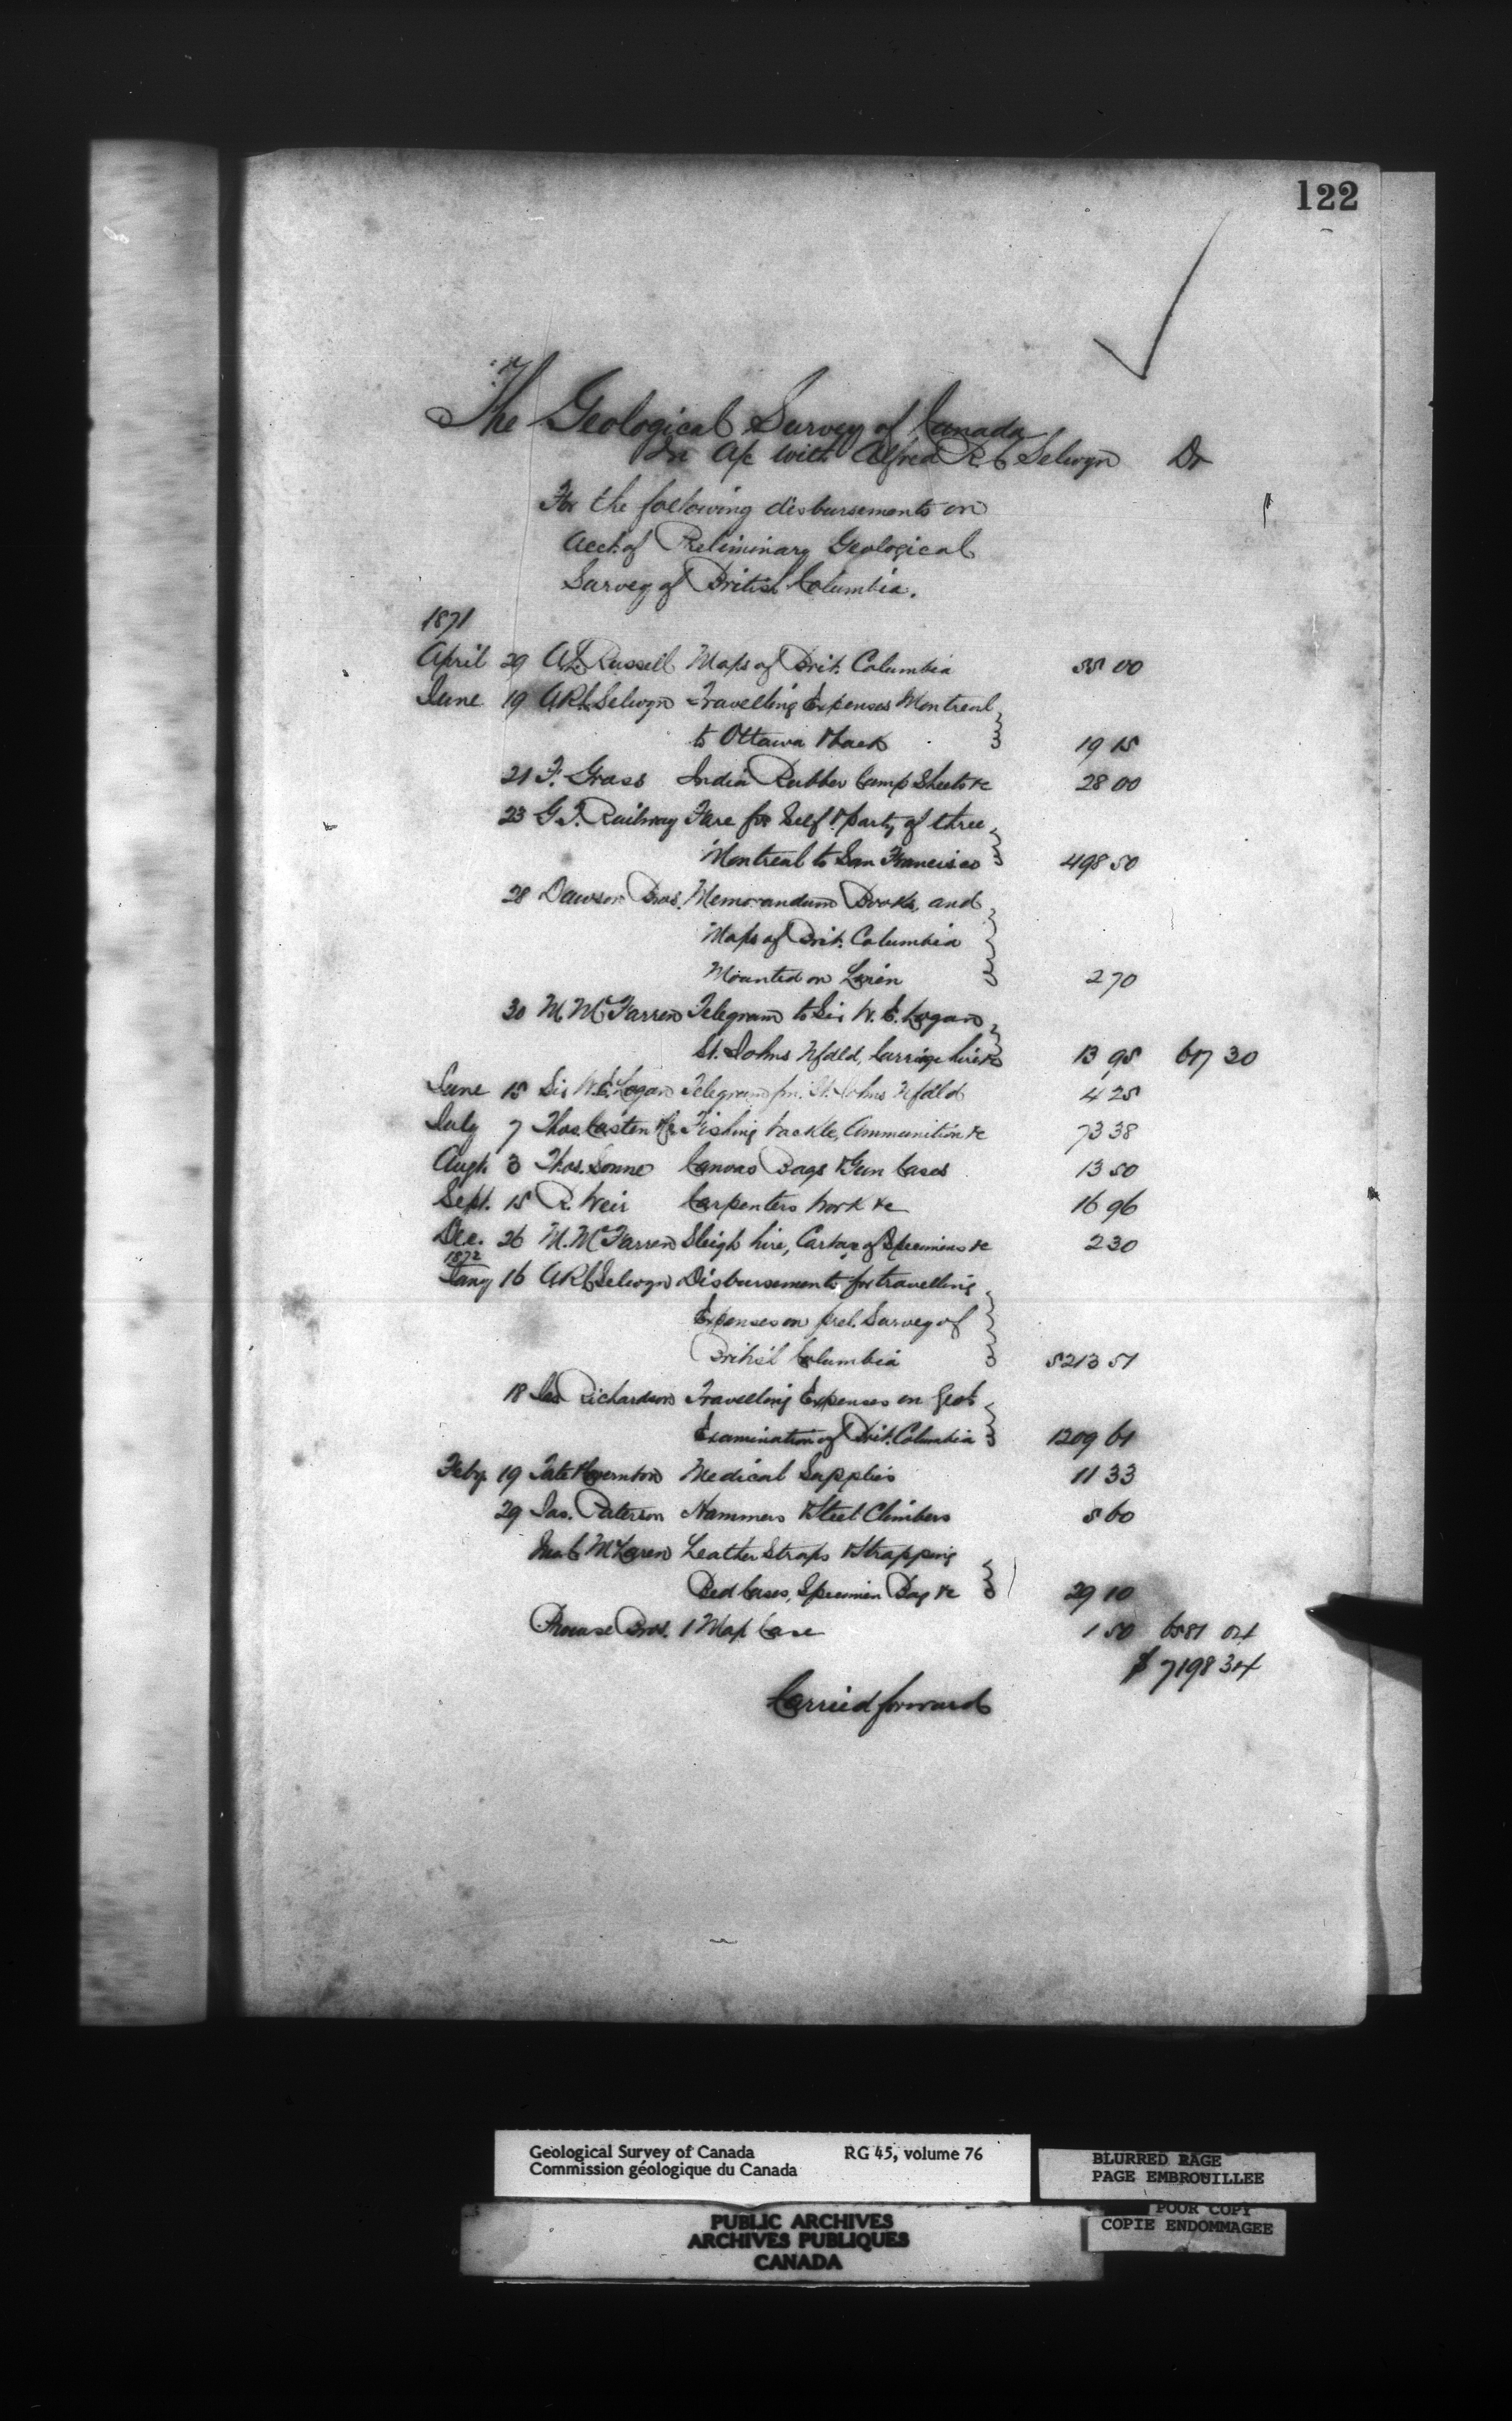 122
The Geological Survey of Canada
In a/c with Alfred R C Selwyn Dr
For the following disbursements on
Acct. of Preliminary Geological
Survey of British Columbia.
1871
April 29 A.L. Russell Maps of Brit. Columbia 55 00
June 19 ARC. Selwyn Travelling Expenses Montreal
to Ottawa & back 19 15
21 F. Gross India Rubber Camp Sheets &c 28 00
23 G.T. Railway Fare for Self & party of three
Montreal to San Francisco 498 50
28 Dawson Bros. Memorandum Books, and
Maps of Brit. Columbia
Mounted on Linen 2 70
30 M. McFarren Telegram to Sir W. E. Logan
St. Johns Nfdld, Carriage hire &c 13 95 617 30
June 15 Sir W.E. Logan Telegram fm. St. Johns Nfdld 4 25
July 7 Thos. Costen &Co Fishing tackle, Ammunition &c 73 38
Augt. 3 Thos. Sonne Canvas Bags & Gun Cases 13 50
Sept. 15 R. Weir Carpenters work &c 16 96
Dec. 26 M. McFarren Sleigh hire, Cartage of Specimens &c 2 30
1872
Jany 16 ARC Selwyn Disbursements for travelling
Expenses on prel. Survey of
British Columbia 5213 51
18 Jas Richardson Travelling Expenses on Geol.
Examination of Brit. Columbia 1209 61
Feby. 19 Tate & Covernton Medical Supplies 11 33
29 Jas. Paterson Hammers & Steel Climbers 5 60
McLaren Leather Straps & Strapping
Bed Cases, Specimen Bag &c 29 10
Prowse Bros. 1 Map Case 1 50 6581 04
$ 7198 34
Carried forward
Geological Survey of Canada RG 45, volume 76
Commission géologique du Canada
BLURRED PAGE
PAGE EMBROUILLEE
POOR COPY
COPIE ENDOMMAGEE
PUBLIC ARCHIVES
ARCHIVES PUBLIQUES
CANADA